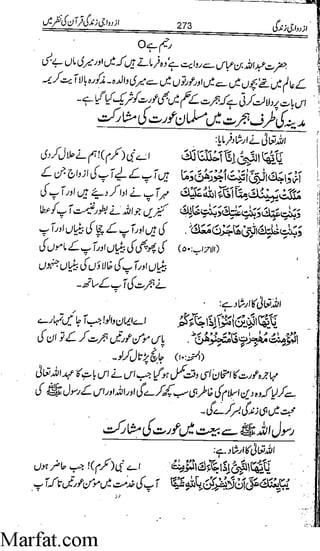 ازدواجی زندگی 273 ازدواجی زندگی قرآن کی نظر میں
رحیم ہے O
حضرت عبداللہ بن عباس سے روایت ہے وہ فرماتے ہیں کہ میں اور میری ماں بے بسی
کے عالم میں تھے بچوں میں سے میں اور عورتوں میں سے میری والدہ۔ مذکورہ بالا آیت کریمہ
اس بات پر دلالت کرتی ہے کہ ہجرت کے حکم میں بھی عورت کو شریک کیا گیا ہے۔
مدینہ کی طرف ہجرت میں مسلمان عورت کی مشارکت
اللہ تعالیٰ نے ارشاد فرمایا:
يَٰٓأَيُّهَا النَّبِيُّ إِنَّآ أَحْلَلْنَا لَكَ
أَزْوَاجَكَ الّٰتِيْٓ اٰتَيْتَ أُجُوْرَهُنَّ وَمَا
مَلَكَتْ يَمِيْنُكَ مِمَّآ أَفَآءَ اللّٰهُ عَلَيْكَ
وَبَنٰتِ عَمِّكَ وَبَنٰتِ عَمّٰتِكَ وَبَنٰتِ خَالِكَ
وَبَنٰتِ خٰلٰتِكَ الّٰتِيْ هَاجَرْنَ مَعَكَ
(الاحزاب:۵۰)
اے نبی (مکرم)! ہم نے حلال کر دی
ہیں آپ کے لیے آپ کی ازواج جن کے
مہر آپ نے ادا کر دیے ہیں اور آپ کی
کنیزیں جو اللہ نے بطور غنیمت آپ کو عطا
کی ہیں اور آپ کے چچا کی بیٹیاں اور آپ
کی پھوپھی کی بیٹیاں اور آپ کے ماموں کی
بیٹیاں اور آپ کی خالاؤں کی بیٹیاں جنہوں
نے ہجرت کی آپ کے ساتھ۔
اللہ تعالیٰ کا ارشاد ہے:
يَٰٓأَيُّهَا الَّذِيْنَ اٰمَنُوْٓا إِذَا جَآءَكُمُ
الْمُؤْمِنٰتُ مُهٰجِرٰتٍ فَامْتَحِنُوْهُنَّ
(الممتحنہ:۱۰)
اے ایمان والو! جب آ جائیں تمہارے
پاس مؤمن عورتیں ہجرت کر کے تو ان کی
جانچ پڑتال کر لو۔
مہاجرہ عورت کا امتحان اسی وقت مکمل ہو گیا جب اس نے اس بات کا عہد اللہ تعالیٰ
سے کر لیا کہ وہ دین اسلام کی خاطر ہی سب کچھ کرے گی اور اللہ اور اس کے رسول ﷺ کی
محبت میں ہی زندگی بسر کرے گی۔
رسول اللہ ﷺ سے بیعت میں عورت کی مشارکت
اللہ تعالیٰ کا ارشاد ہے:
يَٰٓأَيُّهَا النَّبِيُّ إِذَا جَآءَكَ الْمُؤْمِنٰتُ
يُبَايِعْنَكَ عَلٰٓى أَنْ لَّا يُشْرِكْنَ بِاللّٰهِ شَيْئًا
اے نبی (مکرم)! جب حاضر ہوں
آپ کی خدمت میں مؤمن عورتیں تاکہ آپ
Marfat.com